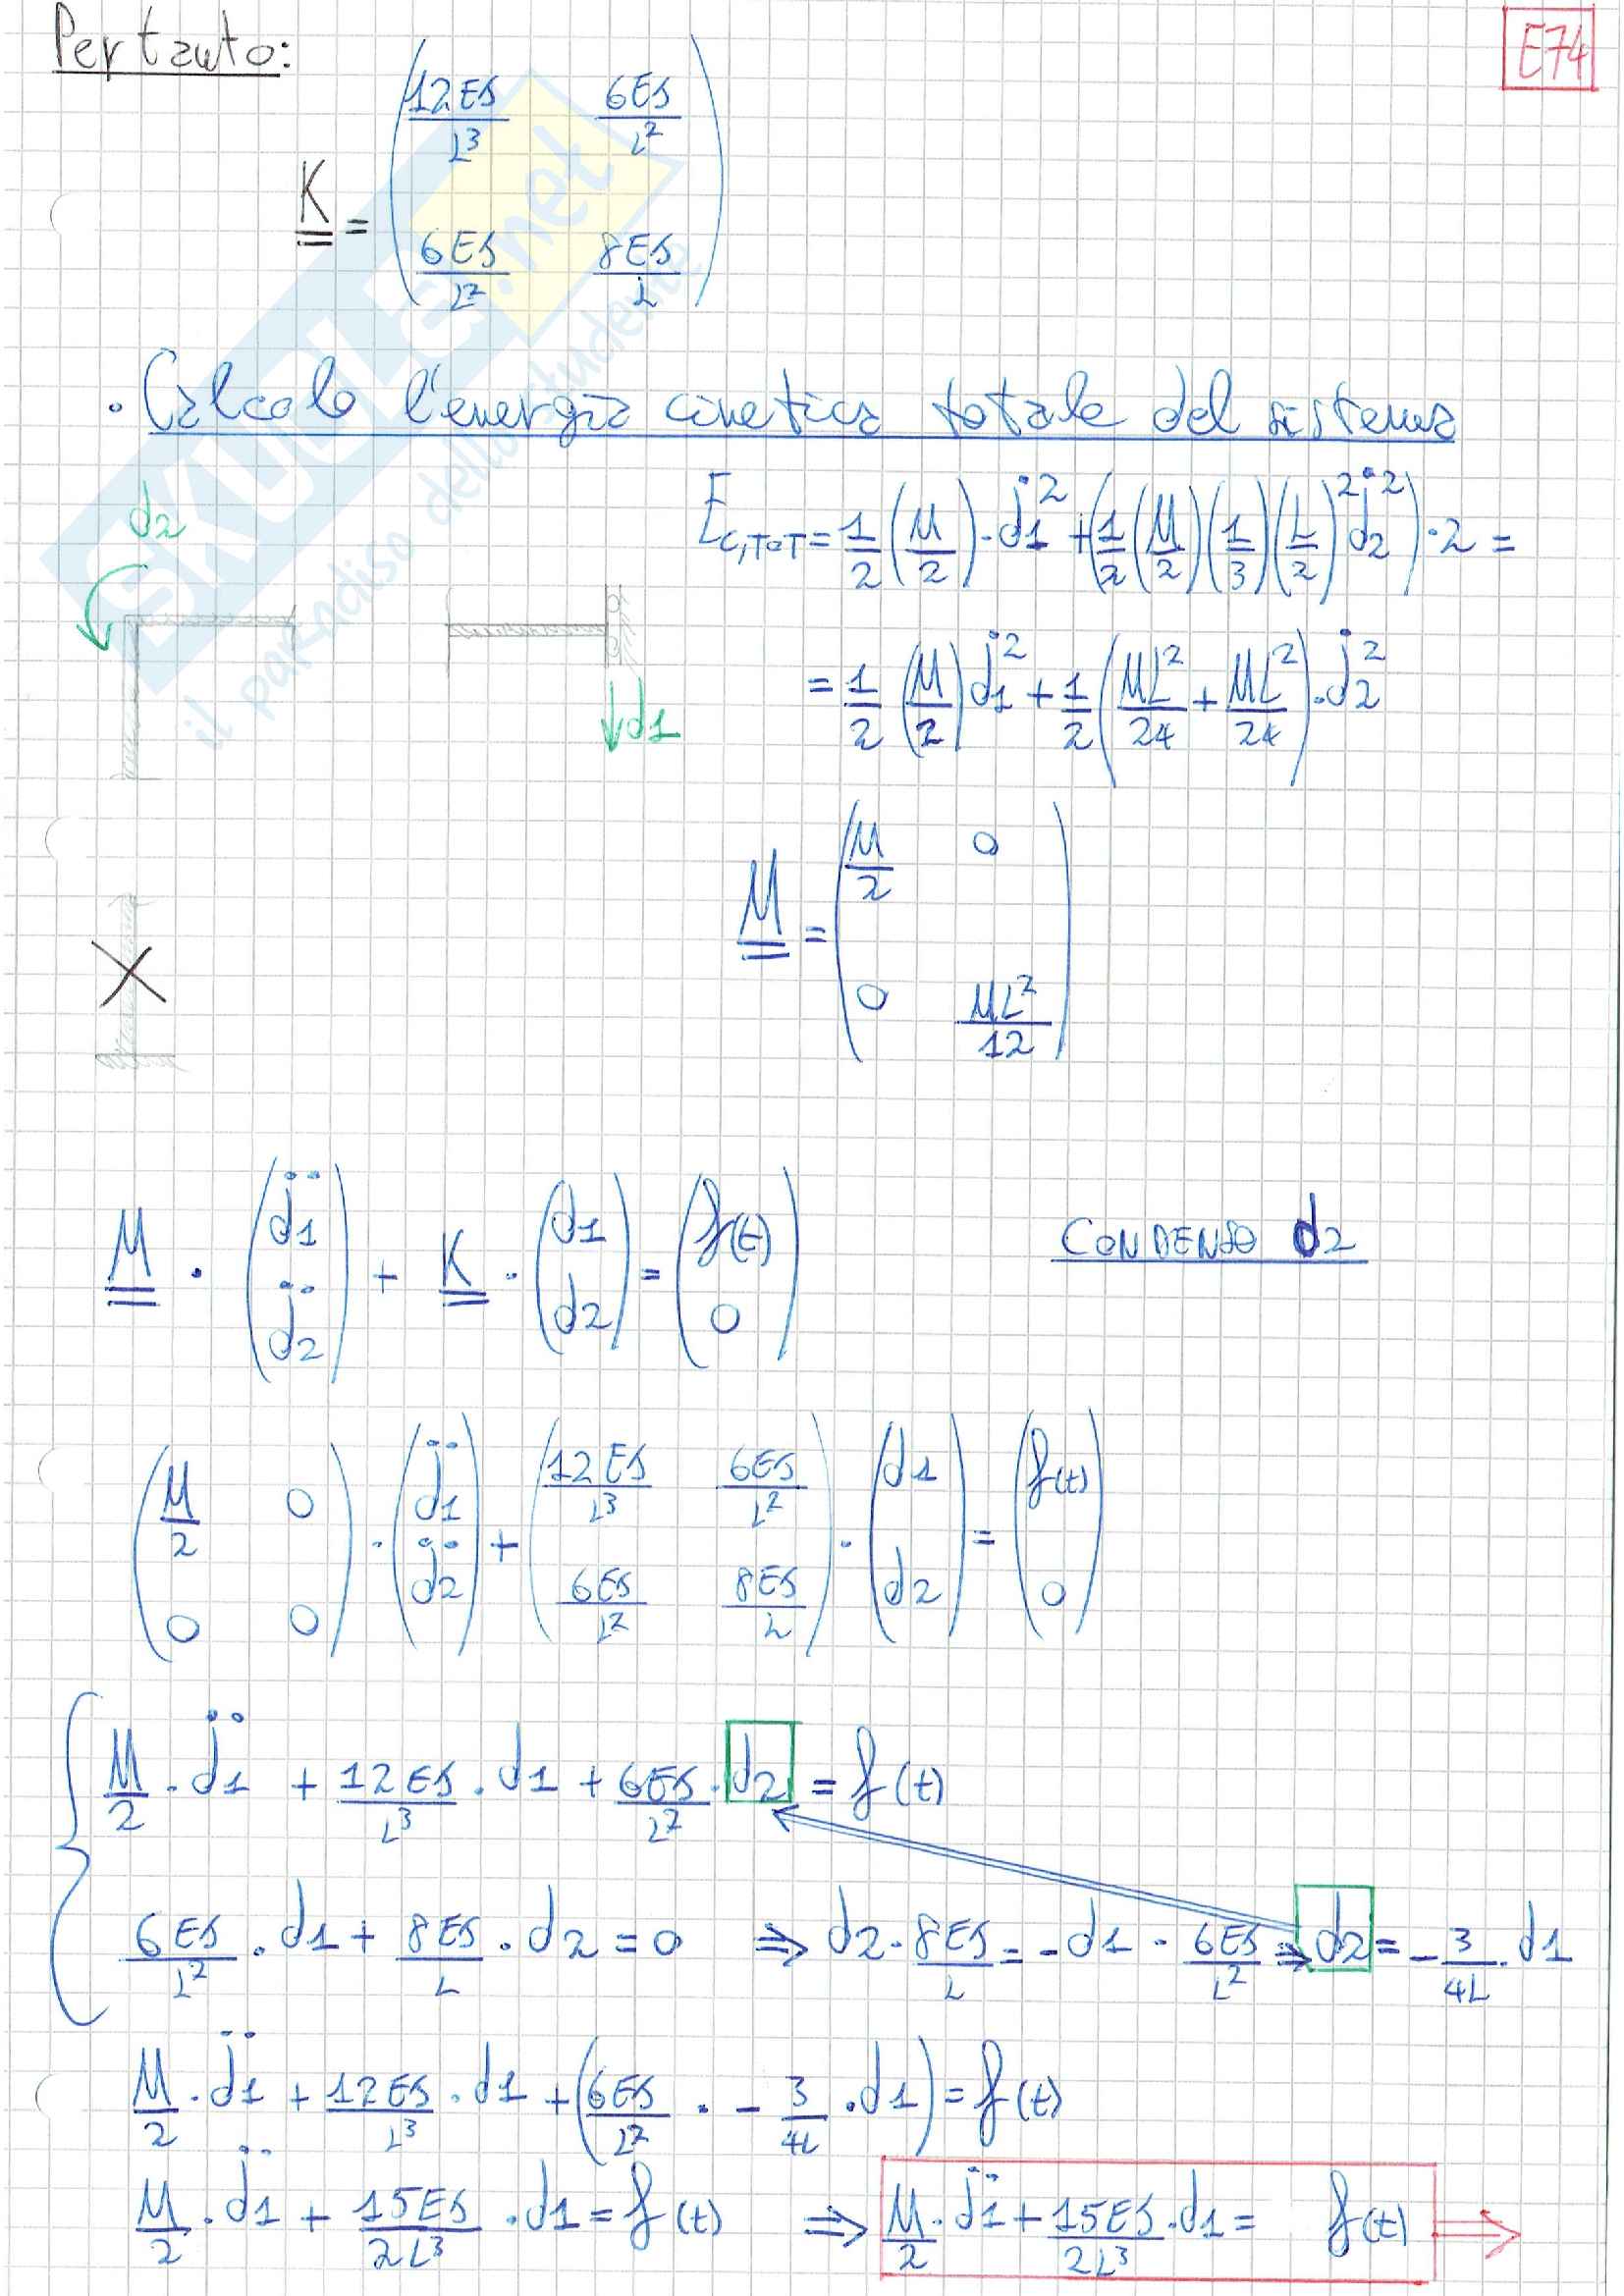 Pertanto:
E74
K = ( 12EJ/L³ 6EJ/L²
6EJ/L² 8EJ/L )
SKUOLA.net
il paradiso dello studente
· Calcolo l'energia cinetica totale del sistema
d2
E_C,TOT = 1/2 (M/2) · ḋ1² + (1/2 (M/2)(1/3)(L/2)² ḋ2²) · 2 =
= 1/2 (M/2) ḋ1² + 1/2 (ML²/24 + ML²/24) · ḋ2²
d1
M = ( M/2 0
0 ML²/12 )
M · (d̈1 d̈2) + K · (d1 d2) = (f(t) 0)
CONDENSO d2
( M/2 0 0 0 ) · (d̈1 d̈2) + ( 12EJ/L³ 6EJ/L² 6EJ/L² 8EJ/L ) · (d1 d2) = (f(t) 0)
M/2 · d̈1 + 12EJ/L³ · d1 + 6EJ/L² · d2 = f(t)
6EJ/L² · d1 + 8EJ/L · d2 = 0 ⇒ d2 · 8EJ/L = -d1 · 6EJ/L² ⇒ d2 = -3/4L · d1
M/2 · d̈1 + 12EJ/L³ · d1 + (6EJ/L² · -3/4L · d1) = f(t)
M/2 · d̈1 + 15EJ/2L³ · d1 = f(t) ⇒ M/2 · d̈1 + 15EJ/2L³ · d1 = f(t) ⇒